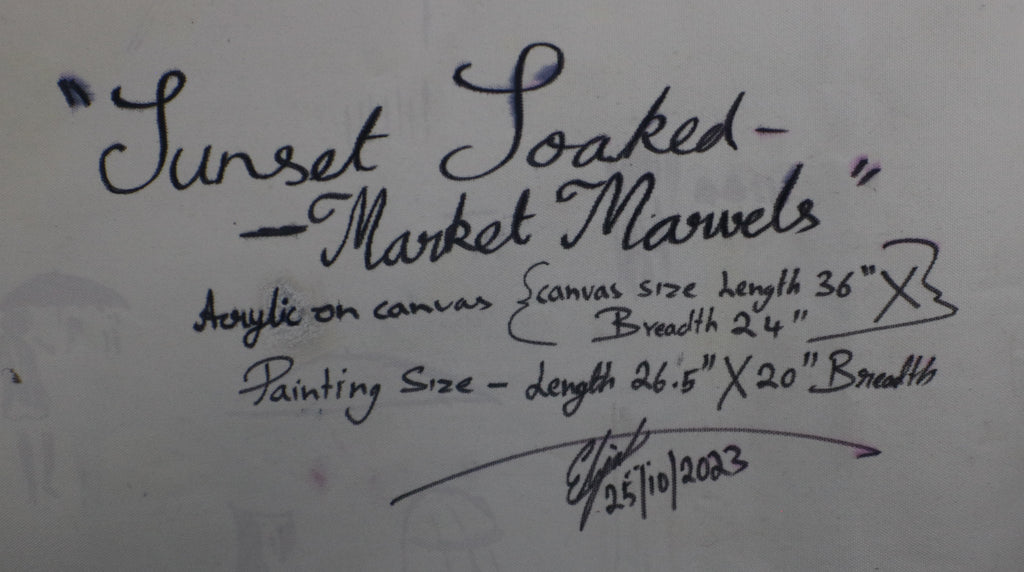 "Sunset Soaked-
- Market Marvels"
Acrylic on canvas {canvas size Length 36" X
Breadth 24"}
Painting Size - Length 26.5" X 20" Breadth
25/10/2023